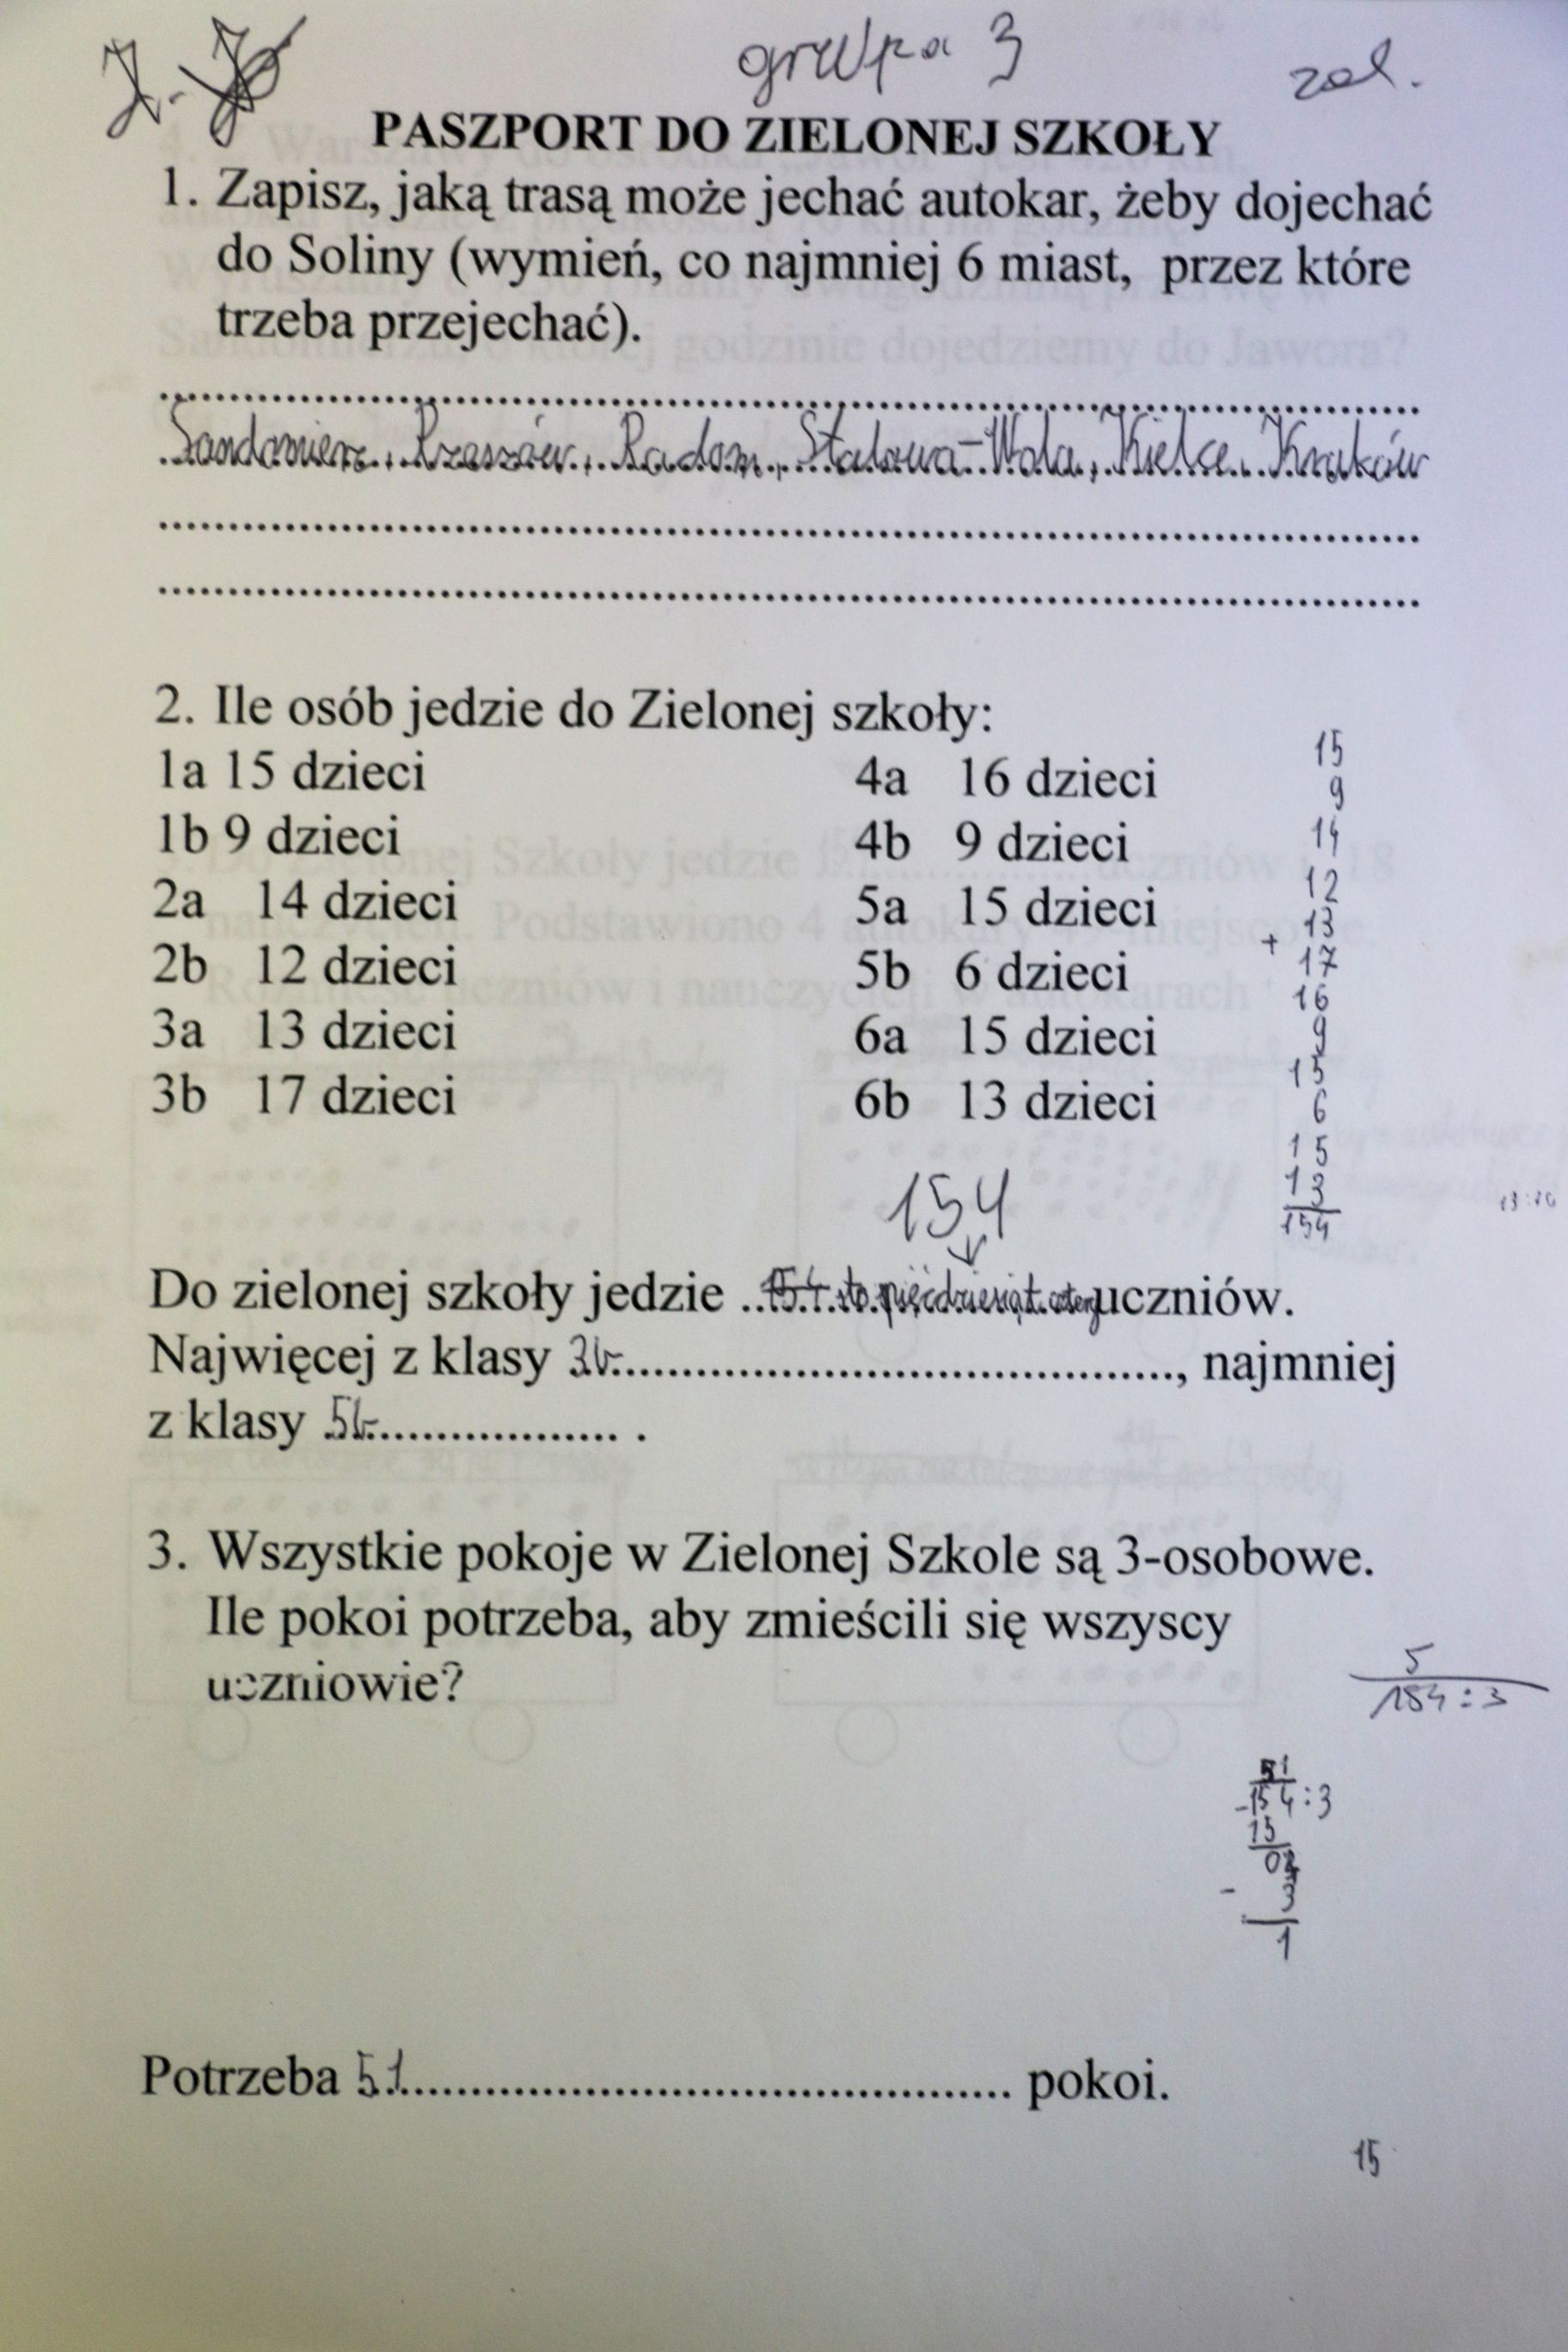 grupa 3
zal.
PASZPORT DO ZIELONEJ SZKOŁY
1. Zapisz, jaką trasą może jechać autokar, żeby dojechać
do Soliny (wymień, co najmniej 6 miast, przez które
trzeba przejechać).
Sandomierz, Rzeszów, Radom, Stalowa-Wola, Kielce, Kraków
2. Ile osób jedzie do Zielonej szkoły:
1a 15 dzieci
1b 9 dzieci
2a 14 dzieci
2b 12 dzieci
3a 13 dzieci
3b 17 dzieci
4a 16 dzieci
4b 9 dzieci
5a 15 dzieci
5b 6 dzieci
6a 15 dzieci
6b 13 dzieci
15
9
14
12
13
+ 17
16
9
15
6
15
13
154
154
Do zielonej szkoły jedzie 154 sto pięćdziesiąt cztery uczniów.
Najwięcej z klasy 3b, najmniej
z klasy 5b.
3. Wszystkie pokoje w Zielonej Szkole są 3-osobowe.
Ile pokoi potrzeba, aby zmieścili się wszyscy
uczniowie?
5
154:3
51
-154:3
15
04
- 3
1
Potrzeba 51 pokoi.
15